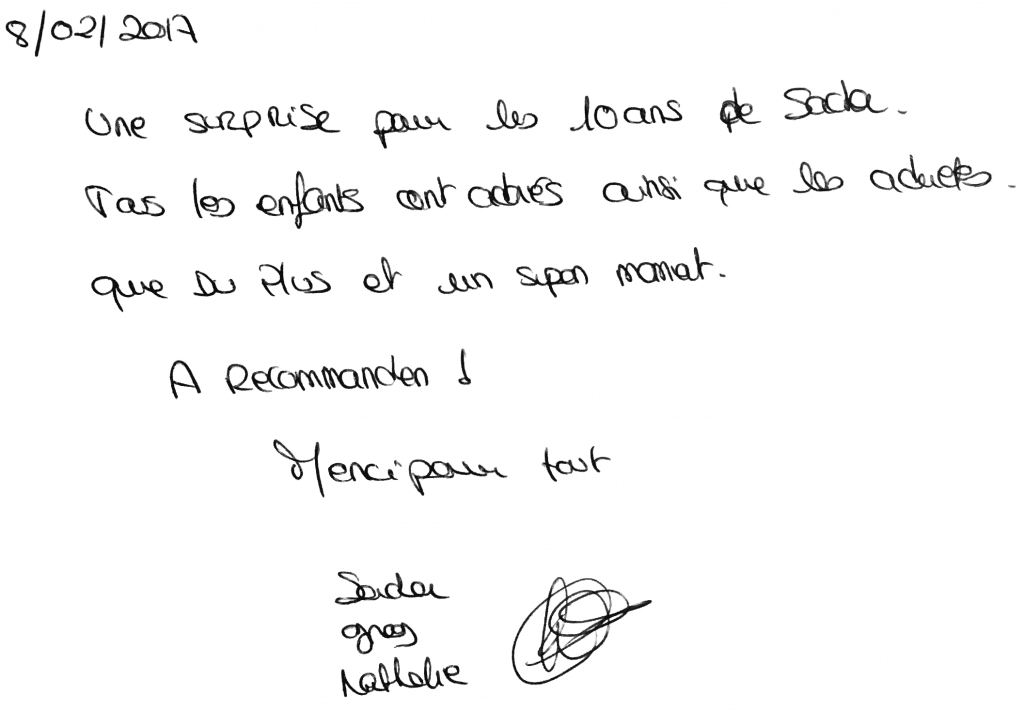 8/02/2017
Une surprise pour les 10 ans de Sacla.
Tous les enfants ont adorés ainsi que les adultes.
que du Plus et un super moment.
A Recommander !
Merci pour tout
greg
Nathalie